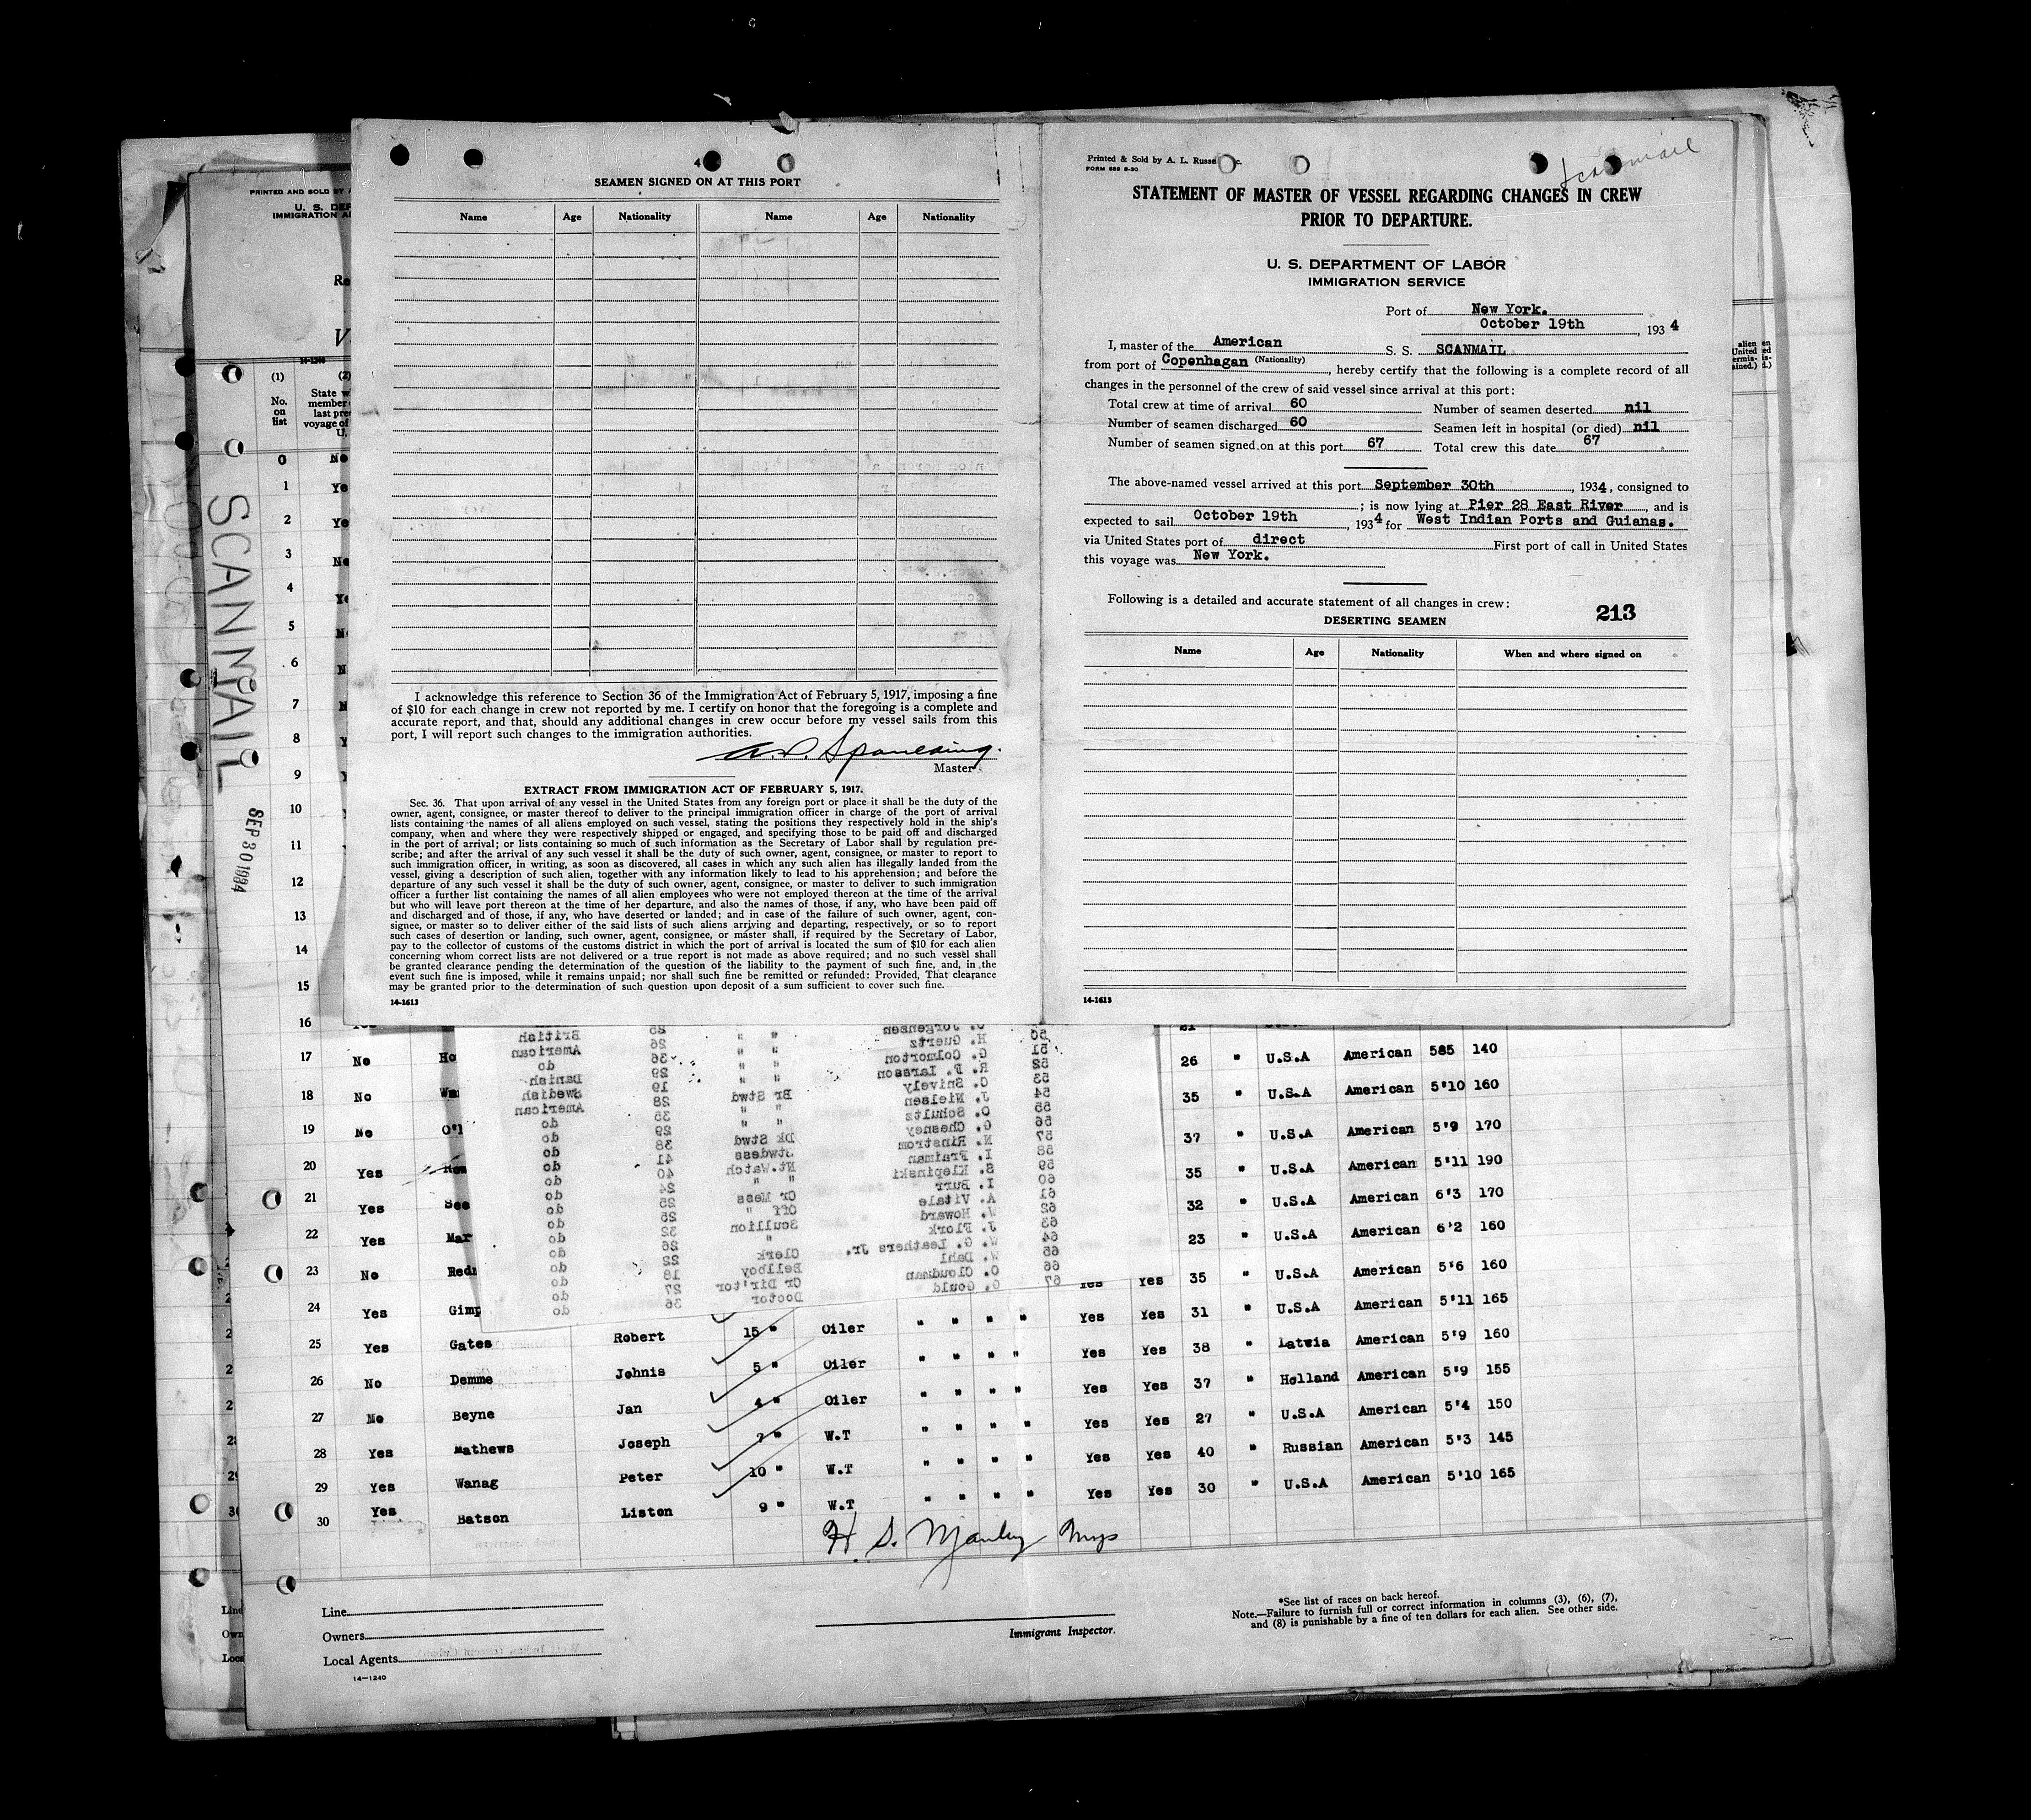 4
SEAMEN SIGNED ON AT THIS PORT
Name Age Nationality Name Age Nationality
I acknowledge this reference to Section 36 of the Immigration Act of February 5, 1917, imposing a fine
of $10 for each change in crew not reported by me. I certify on honor that the foregoing is a complete and
accurate report, and that, should any additional changes in crew occur before my vessel sails from this
port, I will report such changes to the immigration authorities.
A. D. Spaulding.
Master
EXTRACT FROM IMMIGRATION ACT OF FEBRUARY 5, 1917.
Sec. 36. That upon arrival of any vessel in the United States from any foreign port or place it shall be the duty of the
owner, agent, consignee, or master thereof to deliver to the principal immigration officer in charge of the port of arrival
lists containing the names of all aliens employed on such vessel, stating the positions they respectively hold in the ship's
company, when and where they were respectively shipped or engaged, and specifying those to be paid off and discharged
in the port of arrival; or lists containing so much of such information as the Secretary of Labor shall by regulation pre-
scribe; and after the arrival of any such vessel it shall be the duty of such owner, agent, consignee, or master to report to
such immigration officer, in writing, as soon as discovered, all cases in which any such alien has illegally landed from the
vessel, giving a description of such alien, together with any information likely to lead to his apprehension; and before the
departure of any such vessel it shall be the duty of such owner, agent, consignee, or master to deliver to such immigration
officer a further list containing the names of all alien employees who were not employed thereon at the time of the arrival
but who will leave port thereon at the time of her departure, and also the names of those, if any, who have been paid off
and discharged and of those, if any, who have deserted or landed; and in case of the failure of such owner, agent, con-
signee, or master so to deliver either of the said lists of such aliens arriving and departing, respectively, or so to report
such cases of desertion or landing, such owner, agent, consignee, or master shall, if required by the Secretary of Labor,
pay to the collector of customs of the customs district in which the port of arrival is located the sum of $10 for each alien
concerning whom correct lists are not delivered or a true report is not made as above required; and no such vessel shall
be granted clearance pending the determination of the question of the liability to the payment of such fine, and, in the
event such fine is imposed, while it remains unpaid; nor shall such fine be remitted or refunded: Provided, That clearance
may be granted prior to the determination of such question upon deposit of a sum sufficient to cover such fine.
14-1613
Printed & Sold by A. L. Russe c.
FORM 689 8-30
Scanmail
STATEMENT OF MASTER OF VESSEL REGARDING CHANGES IN CREW
PRIOR TO DEPARTURE.
U. S. DEPARTMENT OF LABOR
IMMIGRATION SERVICE
Port of New York.
October 19th, 1934
I, master of the American S. S. SCANMAIL
from port of Copenhagan (Nationality), hereby certify that the following is a complete record of all
changes in the personnel of the crew of said vessel since arrival at this port:
Total crew at time of arrival 60 Number of seamen deserted nil
Number of seamen discharged 60 Seamen left in hospital (or died) nil
Number of seamen signed on at this port 67 Total crew this date 67
The above-named vessel arrived at this port September 30th, 1934, consigned to
; is now lying at Pier 28 East River, and is
expected to sail October 19th, 1934 for West Indian Ports and Guianas.
via United States port of direct First port of call in United States
this voyage was New York.
Following is a detailed and accurate statement of all changes in crew:
213
DESERTING SEAMEN
Name Age Nationality When and where signed on
14-1613
PRINTED AND SOLD BY
U. S. DEP
IMMIGRATION A
Re
V
14-1240
(1) (2)
No. on list
State w
member
last pre
voyage of
U.
SCANMAIL
SEP 30 1934
0 No
1 Ye
2 Ye
3 No
4 Ye
5 N
6 N
7 N
8 Y
9 Y
10
11
12
13
14
15
16
17 No Ho 26 " U.S.A American 585 140
18 No Wa 35 " U.S.A American 5'10 160
19 No O' 37 " U.S.A American 5'9 170
20 Yes 35 " U.S.A American 5'11 190
21 Yes See 32 " U.S.A American 6'3 170
22 Yes Mar 23 " U.S.A American 6'2 160
23 No Red Yes Yes 35 " U.S.A American 5'6 160
24 Yes Gimp Yes Yes 31 " U.S.A American 5'11 165
25 Yes Gates Robert 15 " Oiler " " " " Yes Yes 38 " Latvia American 5'9 160
26 No Demme Johnis 5 " Oiler " " " " Yes Yes 37 " Holland American 5'9 155
27 No Beyne Jan 4 " Oiler " " " " Yes Yes 27 " U.S.A American 5'4 150
28 Yes Mathews Joseph 7 " W.T " " " " Yes Yes 40 " Russian American 5'3 145
29 Yes Wanag Peter 10 " W.T " " " " Yes Yes 30 " U.S.A American 5'10 165
30 Yes Batson Liston 9 " W.T " " " "
50 Jorgensen " " 25 British
51 H. Guertz " " 26 American
52 G. Colmorton " " 36 do
53 R. P. Larsson " " 29 Danish
54 G. Snively " " 19 Swedish
55 J. Nielsen Br Stwd 28 American
56 O. Schultz " " 35 do
57 G. Chesney " " 29 do
58 M. Rinstrom Dk Stwd 38 do
59 I. Fraiman Stwdess 41 do
60 S. Klepinski Nt.Watch 40 do
61 I. Burr " " 24 do
62 A. Vitale Cr Mess 25 do
63 W. Howard Off " 25 do
64 J. Flork Scullion 32 do
65 W. G. Leathers Jr. " 26 do
66 W. Dahl Clerk 22 do
67 O. Cloudman Bellboy 18 do
G. Gould Cr Dir'tor 27 do
Doctor 36 do
H. S. Manley
Line
Owners
Local Agents
14-1240
Immigrant Inspector.
*See list of races on back hereof.
Note.—Failure to furnish full or correct information in columns (3), (6), (7),
and (8) is punishable by a fine of ten dollars for each alien. See other side.